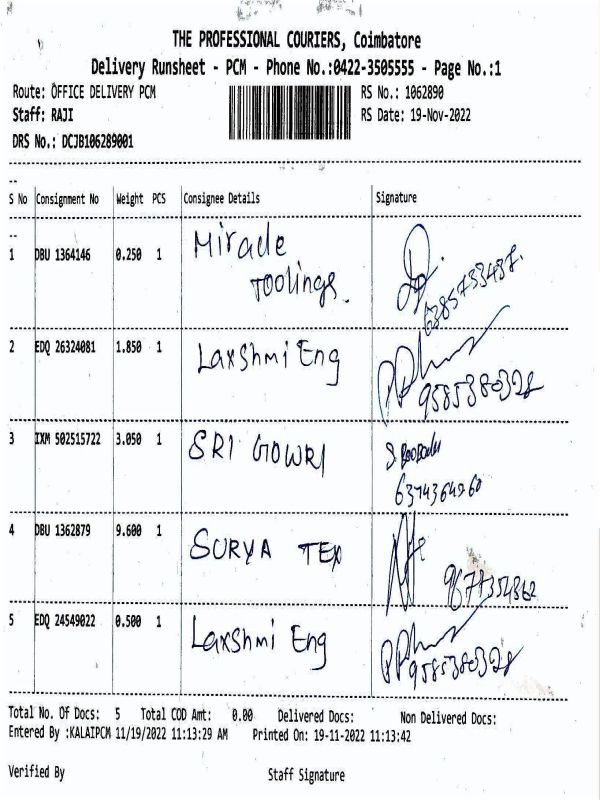 THE PROFESSIONAL COURIERS, Coimbatore
Delivery Runsheet - PCM - Phone No.:0422-3505555 - Page No.:1
Route: OFFICE DELIVERY PCM RS No.: 1062890
Staff: RAJI RS Date: 19-Nov-2022
DRS No.: DCJB106289001
S No Consignment No Weight PCS Consignee Details Signature
1 DBU 1364146 0.250 1 Miracle
Toolings.
6385733487.
2 EDQ 26324081 1.850 1 Laxshmi Eng
9585380328
3 IXM 502515722 3.050 1 SRI GOWRI
6374364960
4 DBU 1362879 9.600 1 SURYA TEX
5 EDQ 24549022 0.500 1 Laxshmi Eng
9585380328
Total No. Of Docs: 5 Total COD Amt: 0.00 Delivered Docs: Non Delivered Docs:
Entered By :KALAIPCM 11/19/2022 11:13:29 AM Printed On: 19-11-2022 11:13:42
Verified By Staff Signature